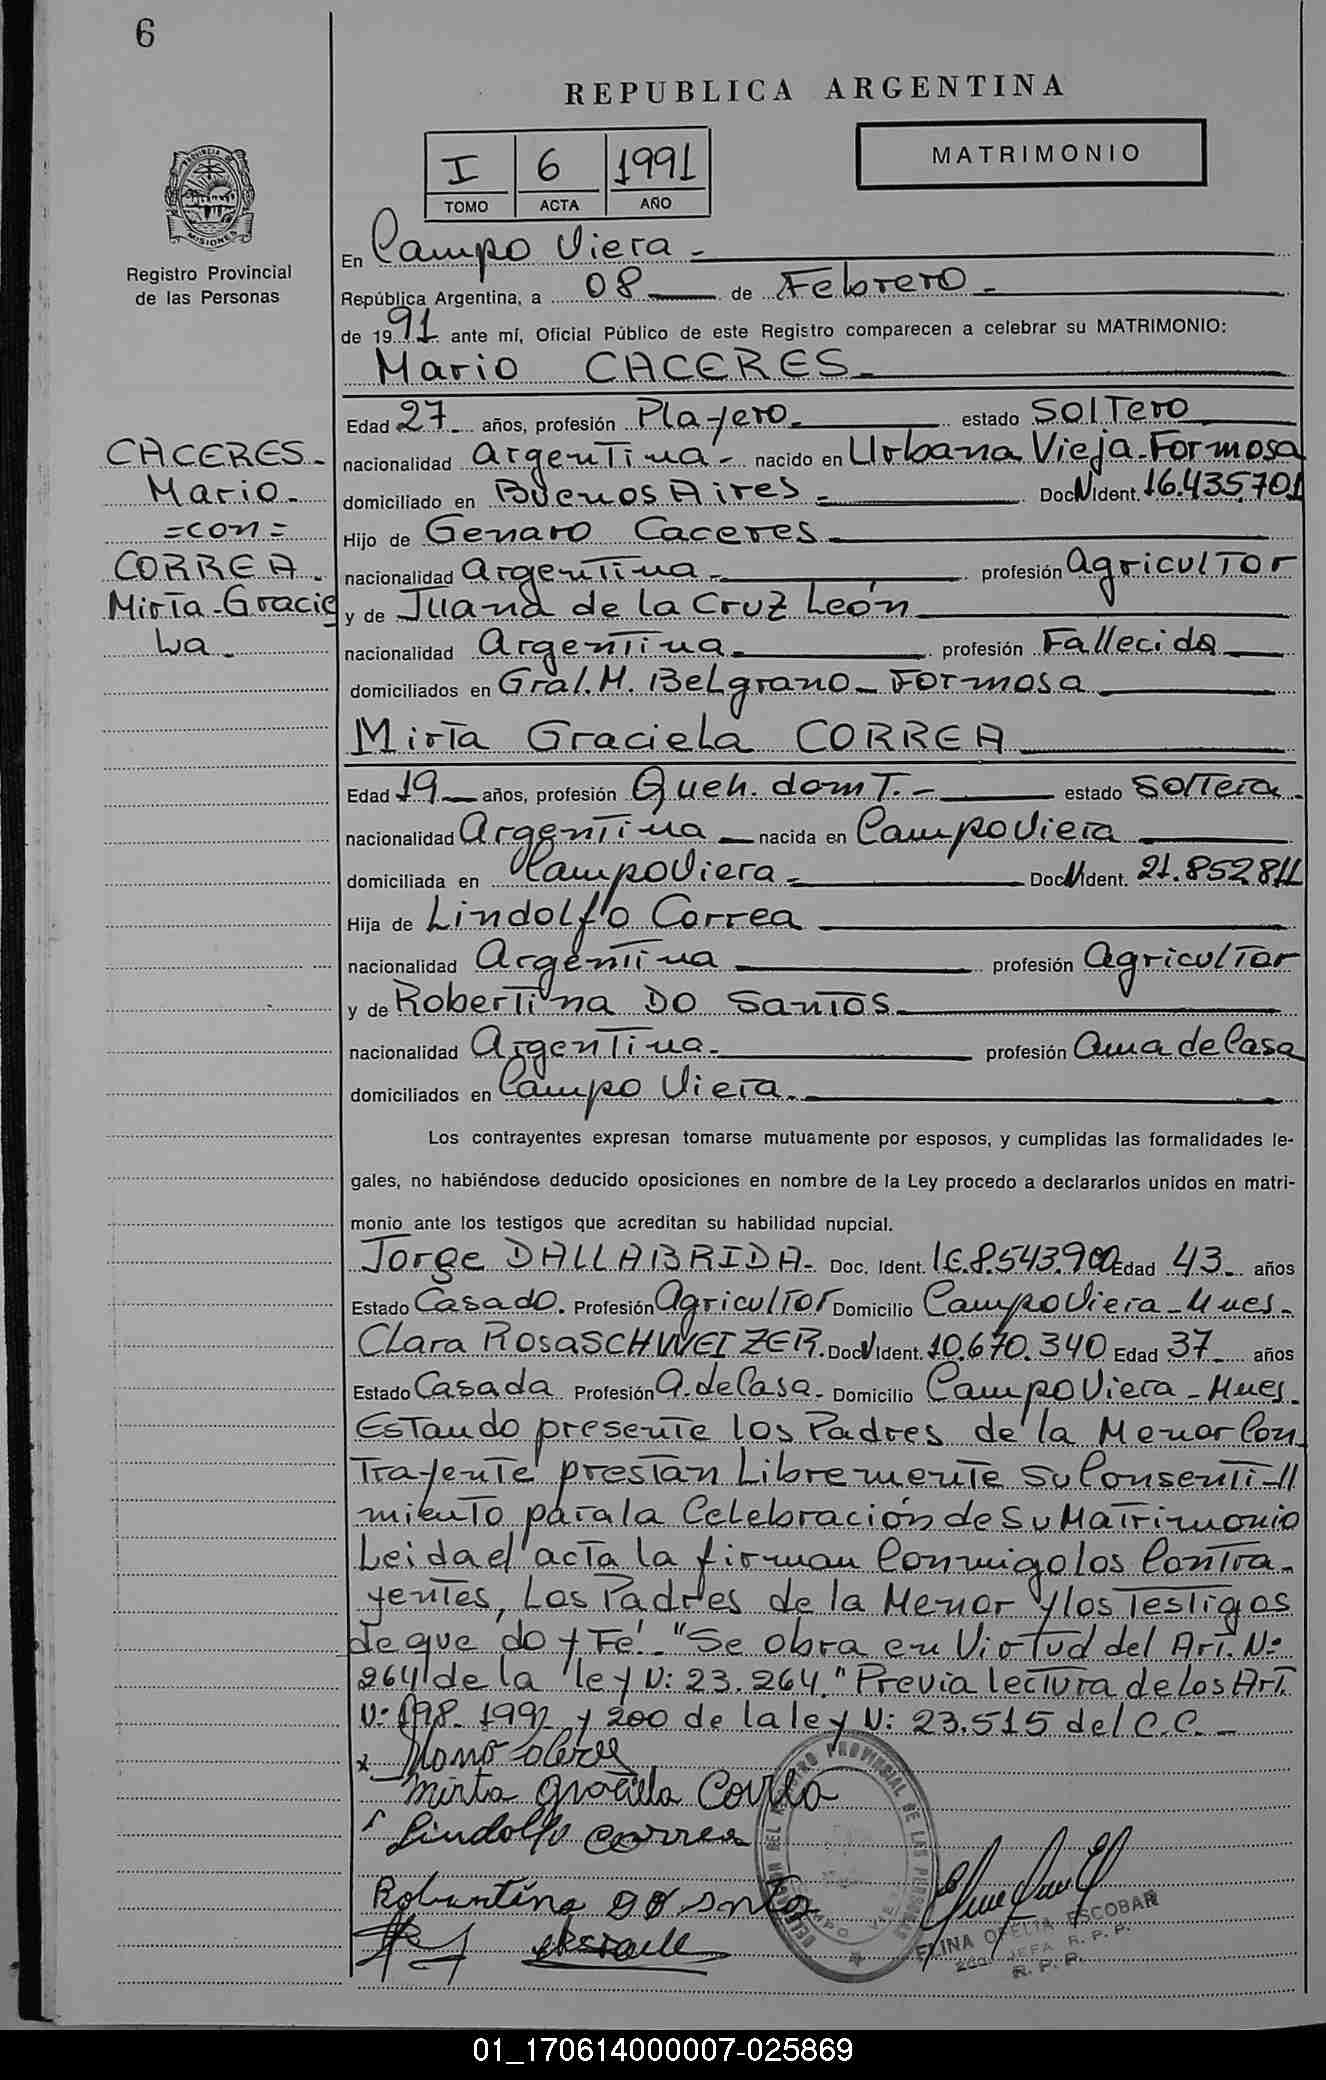 6
REPUBLICA ARGENTINA
I 6 1991
TOMO ACTA AÑO
MATRIMONIO
PROVINCIA DE MISIONES
Registro Provincial
de las Personas
En Campo Viera -
República Argentina, a 08 de Febrero -
de 1991 ante mí, Oficial Público de este Registro comparecen a celebrar su MATRIMONIO:
Mario CACERES -
Edad 27 años, profesión Playero. estado Soltero
nacionalidad argentina - nacido en Urbana Vieja - Formosa
domiciliado en Buenos Aires - Doc N Ident. 16.435.701
Hijo de Genaro Caceres
nacionalidad argentina - profesión agricultor
y de Juana de la Cruz León
nacionalidad argentina. profesión Fallecida
domiciliados en Gral. M. Belgrano - Formosa
CACERES -
Mario -
= con =
CORREA.
Mirta - Gracie
La.
Mirta Graciela CORREA
Edad 19 años, profesión Queh. domT. - estado Soltera.
nacionalidad Argentina nacida en Campo Viera
domiciliada en Campo Viera - Doc N Ident. 21.852.811
Hija de Lindolfo Correa
nacionalidad Argentina profesión agricultor
y de Robertina DO Santos
nacionalidad Argentina - profesión ama de Casa
domiciliados en Campo Viera.
Los contrayentes expresan tomarse mutuamente por esposos, y cumplidas las formalidades le-
gales, no habiéndose deducido oposiciones en nombre de la Ley procedo a declararlos unidos en matri-
monio ante los testigos que acreditan su habilidad nupcial.
Jorge DALLABRIDA - Doc. Ident. 8.543.900 Edad 43 años
Estado Casado. Profesión agricultor Domicilio Campo Viera - Mnes -
Clara Rosa SCHWEIZER. Doc N Ident. 10.670.340 Edad 37 años
Estado Casada Profesión A. de Casa - Domicilio Campo Viera - Mnes -
Estando presente los Padres de la Menor Con
Trayente prestan Libremente su Consenti-//
miento para la Celebración de su Matrimonio
Leida el acta la firman Conmigo los Contra-
yentes, Los Padres de la Menor y los Testigos
de que do y Fé. "Se obra en Virtud del Art. N:
264 de la ley N: 23.264." Previa lectura de los Art.
N: 198 - 199 y 200 de la ley N: 23.515 del C.C. -
Mirta Graciela Correa
Lindolfo Correa
Robertina do
ELINA OFELIA ESCOBAR
JEFA R. P. P.
R. P. P.
01_170614000007-025869